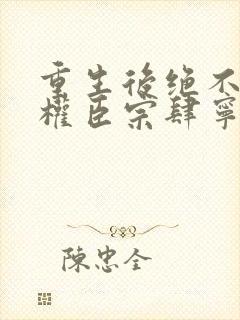 重生後绝不
權臣宗肆寧
陳忠全